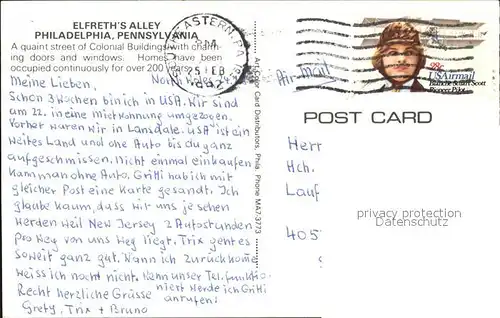 ELFRETH'S ALLEY
PHILADELPHIA, PENNSYLVANIA
A quaint street of Colonial Buildings with charm-
ing doors and windows. Homes have been
occupied continuously for over 200 years.
SOUTHEASTERN, PA
PM
25 FEB
28c
USAirmail
Blanche Stuart Scott
Pioneer Pilot
Air-Mail
North Wales
Meine Lieben,
Schon 3 Wochen bin ich in USA. Wir sind
am 22. in eine Mietwohnung umgezogen.
Vorher waren wir in Lansdale. USA ist ein
weites Land und ohne Auto bis du ganz
aufgeschmissen. Nicht einmal einkaufen
kann man ohne Auto. Gritli hab ich mit
gleicher Post eine Karte gesandt. Ich
glaube kaum, dass wir uns je sehen
werden weil New Jersey 2 Autostunden
pro Weg von uns weg liegt. Trix geht es
soweit ganz gut. Wann ich zurück komme
weiss ich noch nicht. Wenn unser Tel. funktio-
niert werde ich Gritli
anrufen!
Recht herzliche Grüsse
Grety, Trix + Bruno
Art Color Card Distributors, Phila. Phone MA7-3773
POST CARD
Herr
Hch.
Lauf
405
privacy protection
Datenschutz